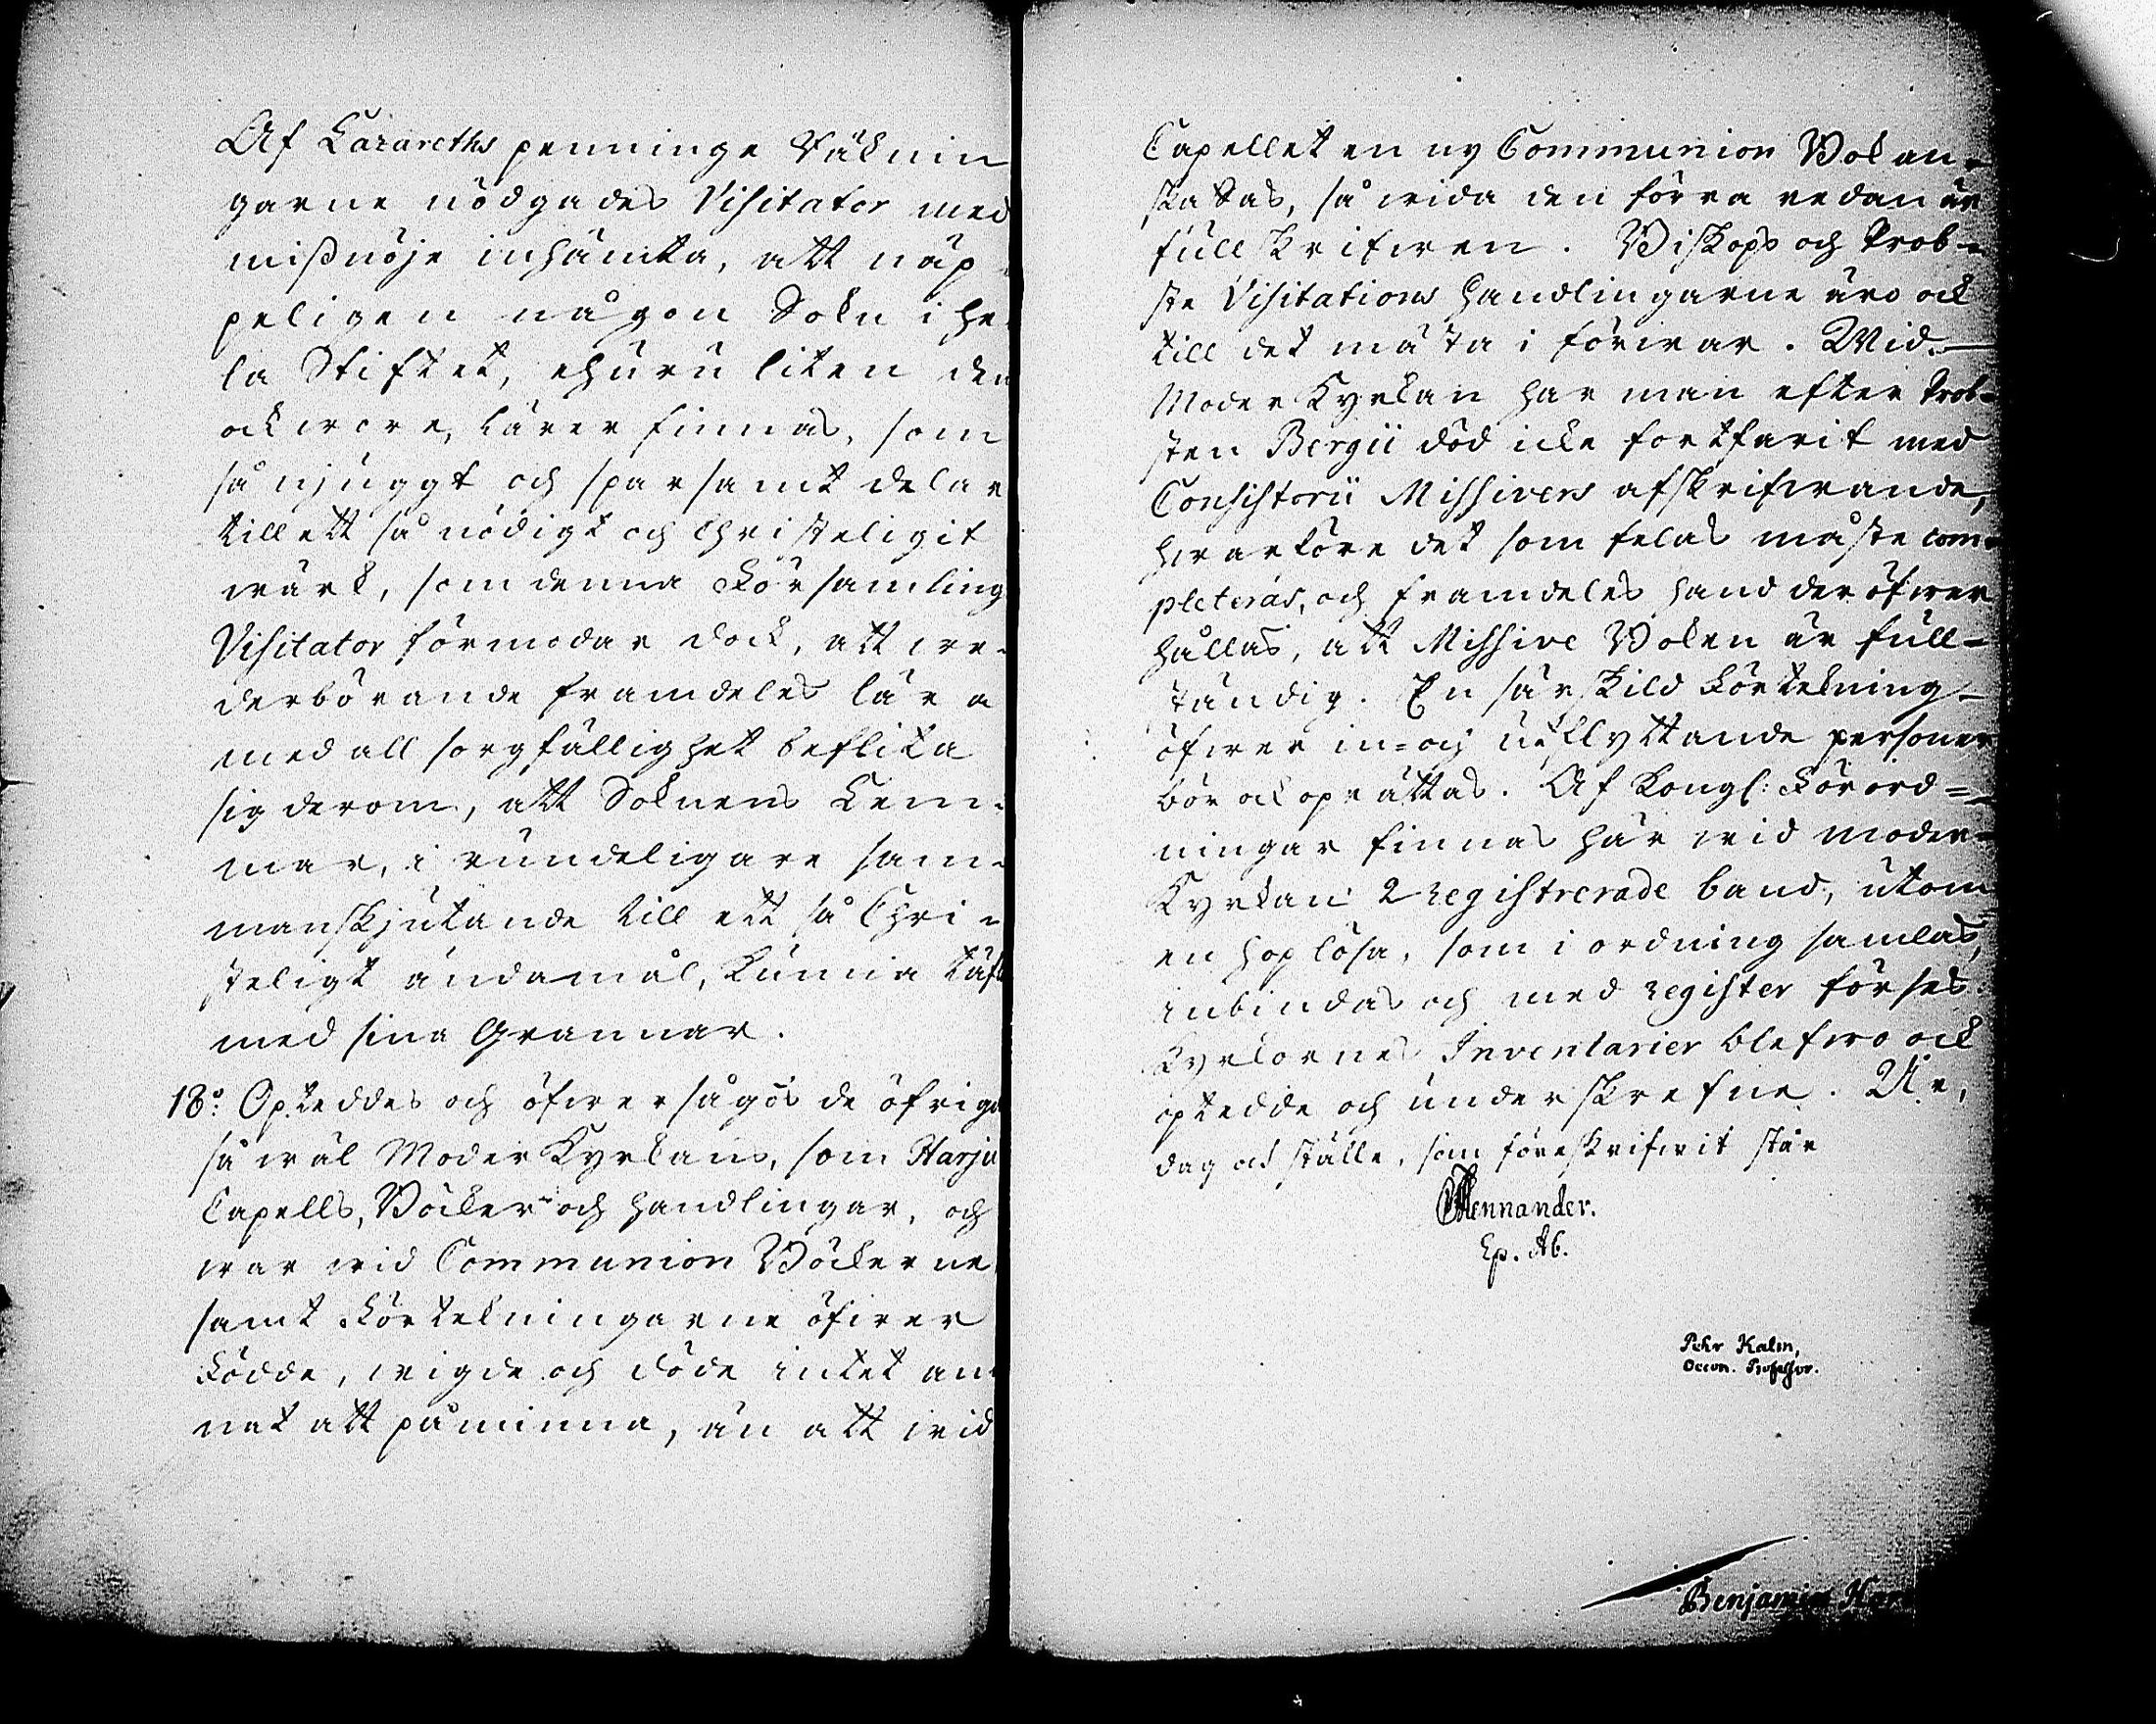 Af Lazareths penninge Räknin
garne nödgades Visitator med
mißnöje inhämta, att näp-
peligen någon Sokn i he-
la Stiftet, ehuru liten den
ock wore, lärer finnas, som
så njuggt och sparsamt delar
till ett så nödigt och Christeligit
wärk, som denna Församling
Visitator förmodar dock, att we-
derbörande framdeles lära
med all sorgfällighet beflita
sig derom, att Soknens Lem-
mar, i rundeligare sam-
manskjutande till ett så Chri-
steligt ändamål, kunna täfla
med sina Grannar.
18:o Opteddes och öfwersågos de öfriga
så wäl Moder Kyrkans, som Harju
Capells, Böcker och handlingar, och
war wid Communion Böckerne
samt Förtekningarne öfwer
Födde, wigde och döde intet an
nat att påminna, än att wid
Capellet en ny Communion Bok an-
skaffas, så wida den förra redan är
fullskrifwen. Biskops och Prob-
ste Visitations Handlingarne äro ock
till det mästa i förwar. Wid
Moder Kyrkan har man efter Prob-
sten Bergii död icke fortfarit med
Consistorii Missivers afskrifwande,
hwarföre det som felas måste com-
pleteras, och framdeles hand deröfwer
hållas, att Missive Boken är full-
ständig. En särskild Förtekning
öfwer in- och utflyttande personer
bör ock oprättas. Af Kongl: Förord-
ningar finnas här wid moder-
Kyrkan 2 registrerade band, utom
en hop lösa, som i ordning samlas,
inbindas och med register förses.
Kyrkornes Inventarier blefwo ock
optedde och underskrefne. Ut s,
dag och ställe, som föreskrifwit står
CFMennander.
Ep. Ab.
Pehr Kalm,
Oecon. Professor.
Benjamin